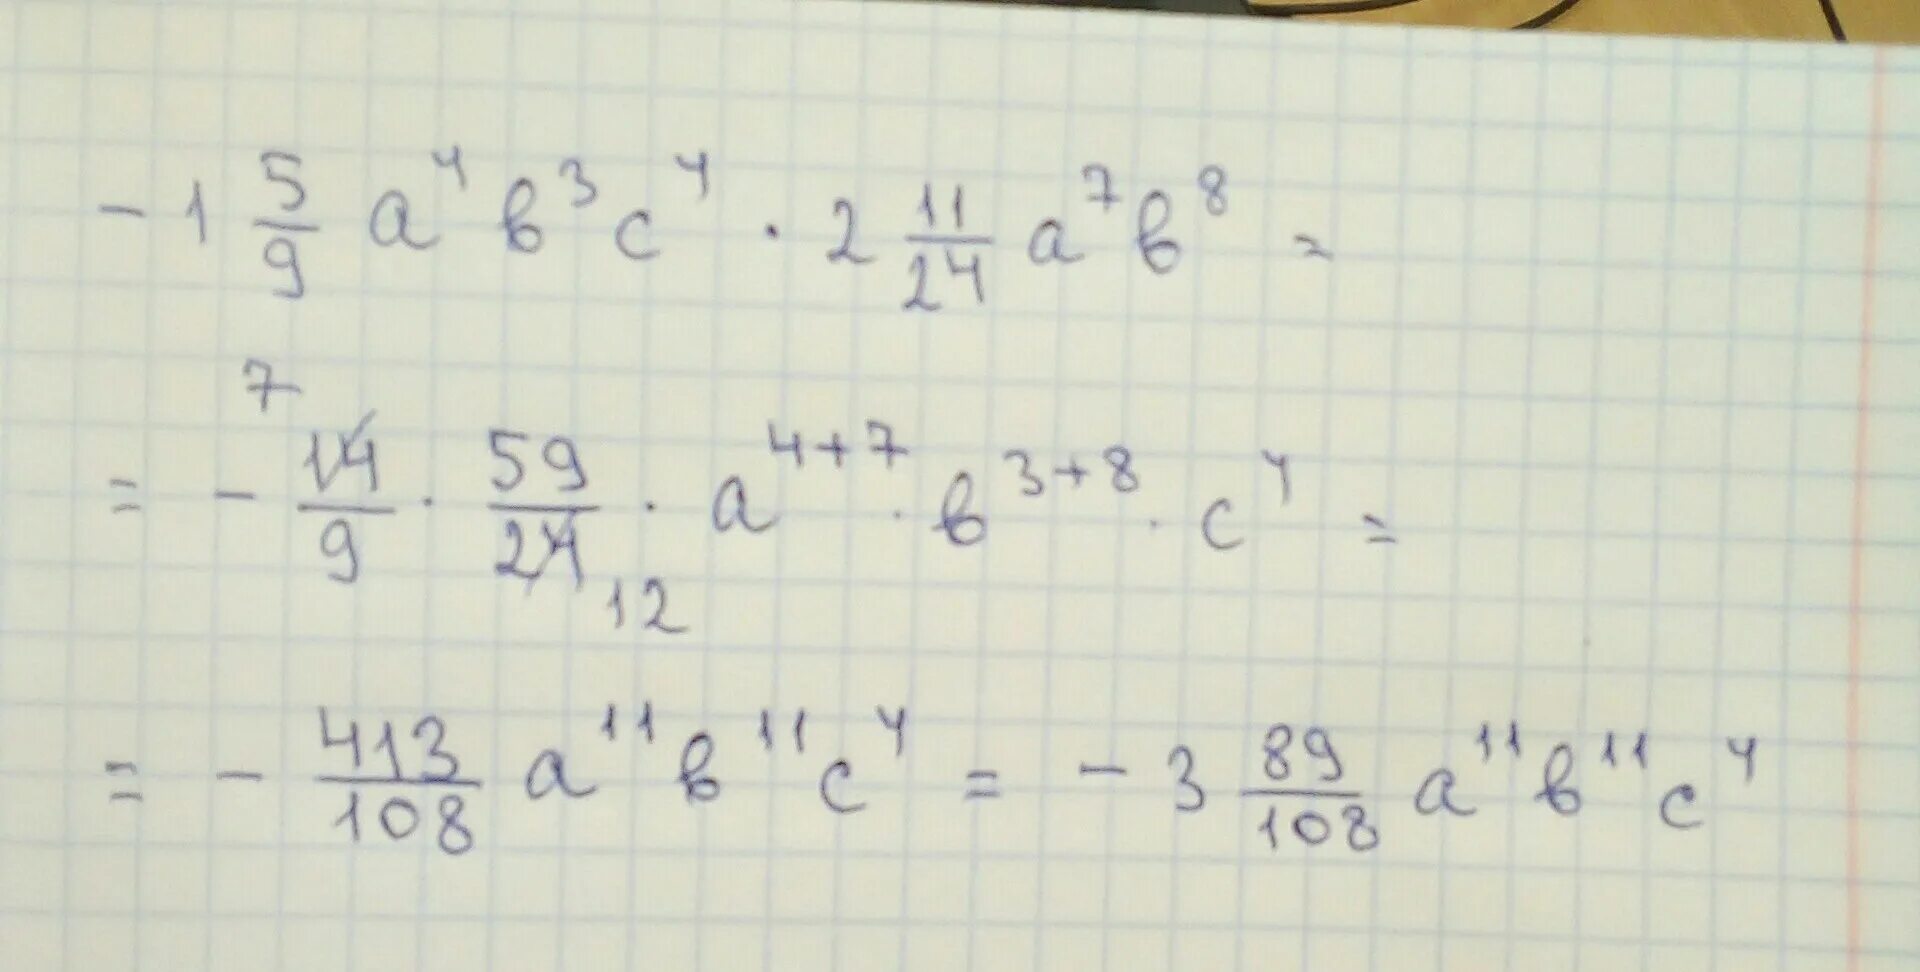 -1 5/9 a⁴ в³ c⁴ · 2 11/24 a⁷ в⁸ =
= - 14/9 · 59/24 · a⁴⁺⁷ · в³⁺⁸ · c⁴ =
7
12
= - 413/108 a¹¹ в¹¹ c⁴ = - 3 89/108 a¹¹ в¹¹ c⁴